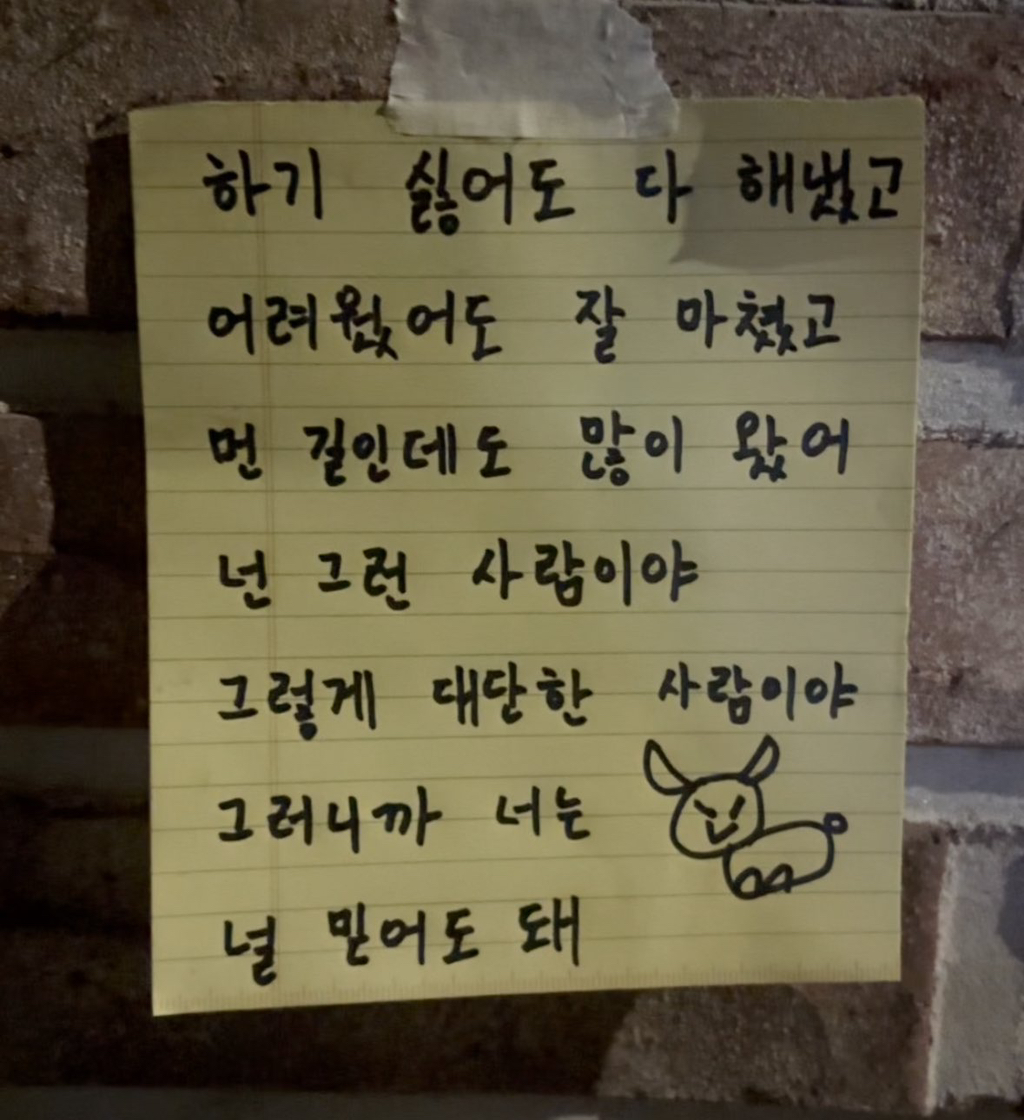 하기 싫어도 다 해냈고
어려웠어도 잘 마쳤고
먼 길인데도 많이 왔어
넌 그런 사람이야
그렇게 대단한 사람이야
그러니까 너는
널 믿어도 돼